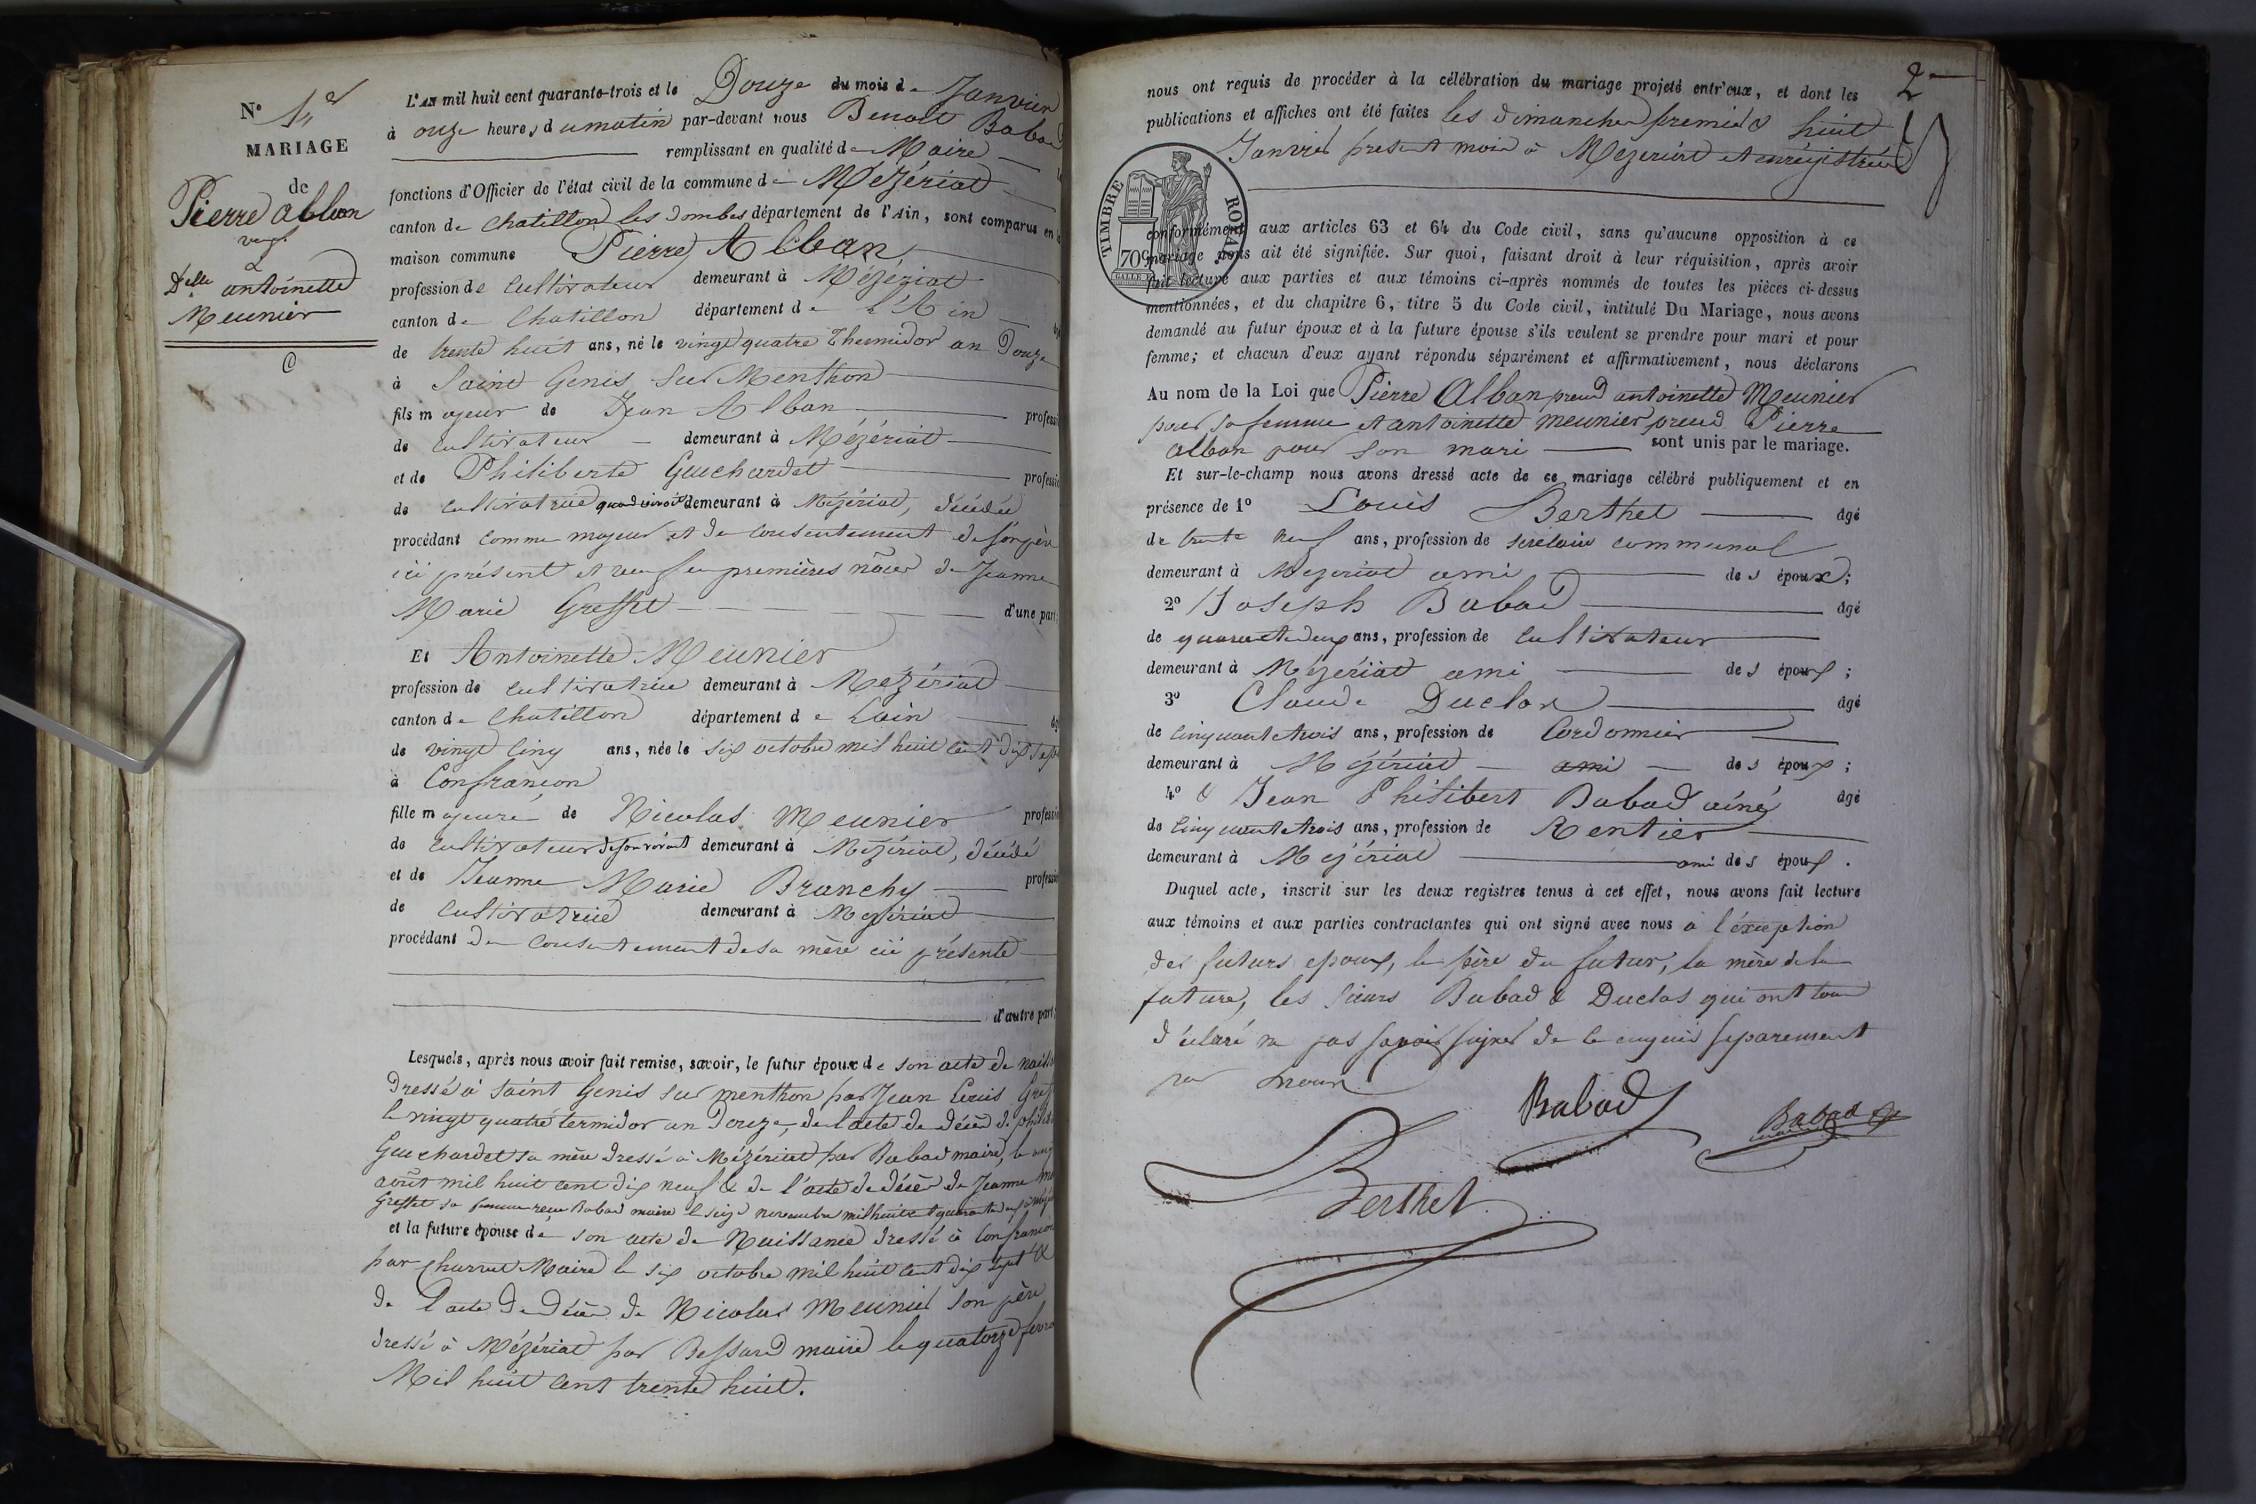 N° 1er
MARIAGE
de
Pierre alban
veuf
&
Delle antoinette
Meunier
L'AN mil huit cent quarante-trois et le Douze du mois de Janvier
à onze heures du matin par-devant nous Benoit Babad
remplissant en qualité de Maire
fonctions d'Officier de l'état civil de la commune de Mézériat
canton de chatillon les dombes département de l'Ain, sont comparus en
maison commune Pierre Alban
profession de Cultivateur demeurant à Mézériat
canton de Chatillon département de L'Ain
de trente huit ans, né le vingt quatre Thermidor an Douze
à Saint Genis sur Menthon
fils majeur de Jean Alban professi
de cultivateur demeurant à Mézériat
et de Philiberte Guichardet professi
de cultivatrice quand vivoit demeurant à Mézériat, décédée
procédant comme majeur et du consentement de son père
ici présent et veuf en premières nôces de Jeanne
Marie Greffet d'une part;
Et Antoinette Meunier
profession de cultivatrice demeurant à Mézériat
canton de Chatillon département de Lain
de vingt cinq ans, née le six octobre mil huit cent dix sept
à Confrançon
fille majeure de Nicolas Meunier professi
de cultivateur de son vivant demeurant à Mézériat, décédé
et de Jeanne Marie Branchy professi
de cultivatrice demeurant à Mézériat
procédant du consentement de sa mère ici présente
d'autre part;
Lesquels, après nous avoir fait remise, savoir, le futur époux de son acte de naiss
Dressé à saint Genis sur menthon par Jean Louis Gref
le vingt quatre termidor an Douze, de l'acte de décès de phili
Guichardet sa mère dressé à Mézériat par Babad maire, le
août mil huit cent dix neuf & de l'acte de décès de Jeanne
Greffet sa femme reçu Babad maire le seize novembre mil huit cent quarante deux à
et la future épouse de son acte de Naissance dressé à Confrancon
par Charvet Maire le six octobre mil huit cent dix sept &
de l'acte de décès de Nicolas Meunier son père
dressé à Mézériat par Bessard maire le quatorze fevr
Mil huit cent trente huit.
2
nous ont requis de procéder à la célébration du mariage projeté entr'eux, et dont les
publications et affiches ont été faites les dimanches premier & huit
Janvier présent mois à Mezeriat et enrégistrées
TIMBRE ROYAL
709
conformément aux articles 63 et 64 du Code civil, sans qu'aucune opposition à ce
mariage nous ait été signifiée. Sur quoi, faisant droit à leur réquisition, après avoir
fait lecture aux parties et aux témoins ci-après nommés de toutes les pièces ci-dessus
mentionnées, et du chapitre 6, titre 5 du Code civil, intitulé Du Mariage, nous avons
demandé au futur époux et à la future épouse s'ils veulent se prendre pour mari et pour
femme; et chacun d'eux ayant répondu séparément et affirmativement, nous déclarons
Au nom de la Loi que Pierre Alban prend antoinette Meunier
pour sa femme et antoinette meunier prend Pierre
alban pour son mari sont unis par le mariage.
Et sur-le-champ nous avons dressé acte de ce mariage célébré publiquement et en
présence de 1° Louis Berthet âgé
de trente neuf ans, profession de secretaire communal
demeurant à Mezeriat ami des époux;
2° Joseph Babad âgé
de quarante deux ans, profession de cultivateur
demeurant à Mézériat ami des époux;
3° Claude Duclos âgé
de cinquante trois ans, profession de Cordonnier
demeurant à Mézériat ami des époux;
4° & Jean Philibert Babad aîné âgé
de cinquante trois ans, profession de Rentier
demeurant à Mézériat ami des époux.
Duquel acte, inscrit sur les deux registres tenus à cet effet, nous avons fait lecture
aux témoins et aux parties contractantes qui ont signé avec nous à l'éxception
des futurs epoux, le père du futur, la mère de la
future, les sieurs Babad & Duclos qui ont tous
déclaré ne pas savoir signer de ce enquis separement
par nous
Babad
Babad
Berthet